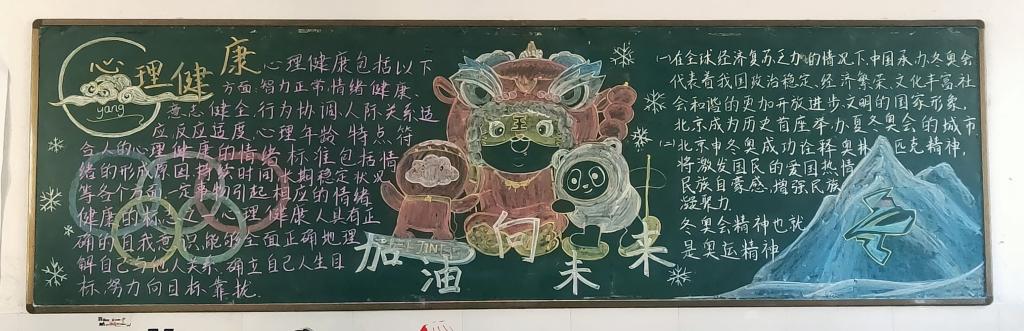 心理健康
yang
心理健康包括以下
方面:智力正常,情绪健康、
意志健全,行为协调,人际关系适
应,反应适度,心理年龄特点符
合人的心理健康的情绪标准包括情
绪的形成原因,持续时间,长期稳定状况
等各个方面,一定事物引起相应的情绪
健康的标志之一,心理健康人具有正
确的自我意识,能够全面正确地理
解自己与他人关系、确立自己人生目
标,努力向目标靠拢.
王
加油向未来
(一)在全球经济复苏乏力的情况下,中国承办冬奥会
代表着我国政治稳定、经济繁荣、文化丰富,社
会和谐的更加开放进步文明的国家形象,
北京成为历史首座举办夏冬奥会的城市
(二)北京申冬奥成功诠释奥林匹克精神,
将激发国民的爱国热情
民族自豪感,增强民族
凝聚力.
冬奥会精神也就
是奥运精神